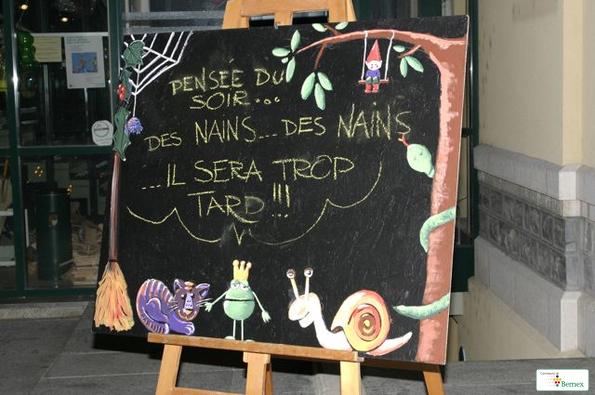 PENSÉE DU
SOIR...
DES NAINS... DES NAINS
...IL SERA TROP
TARD!!!
Bernex